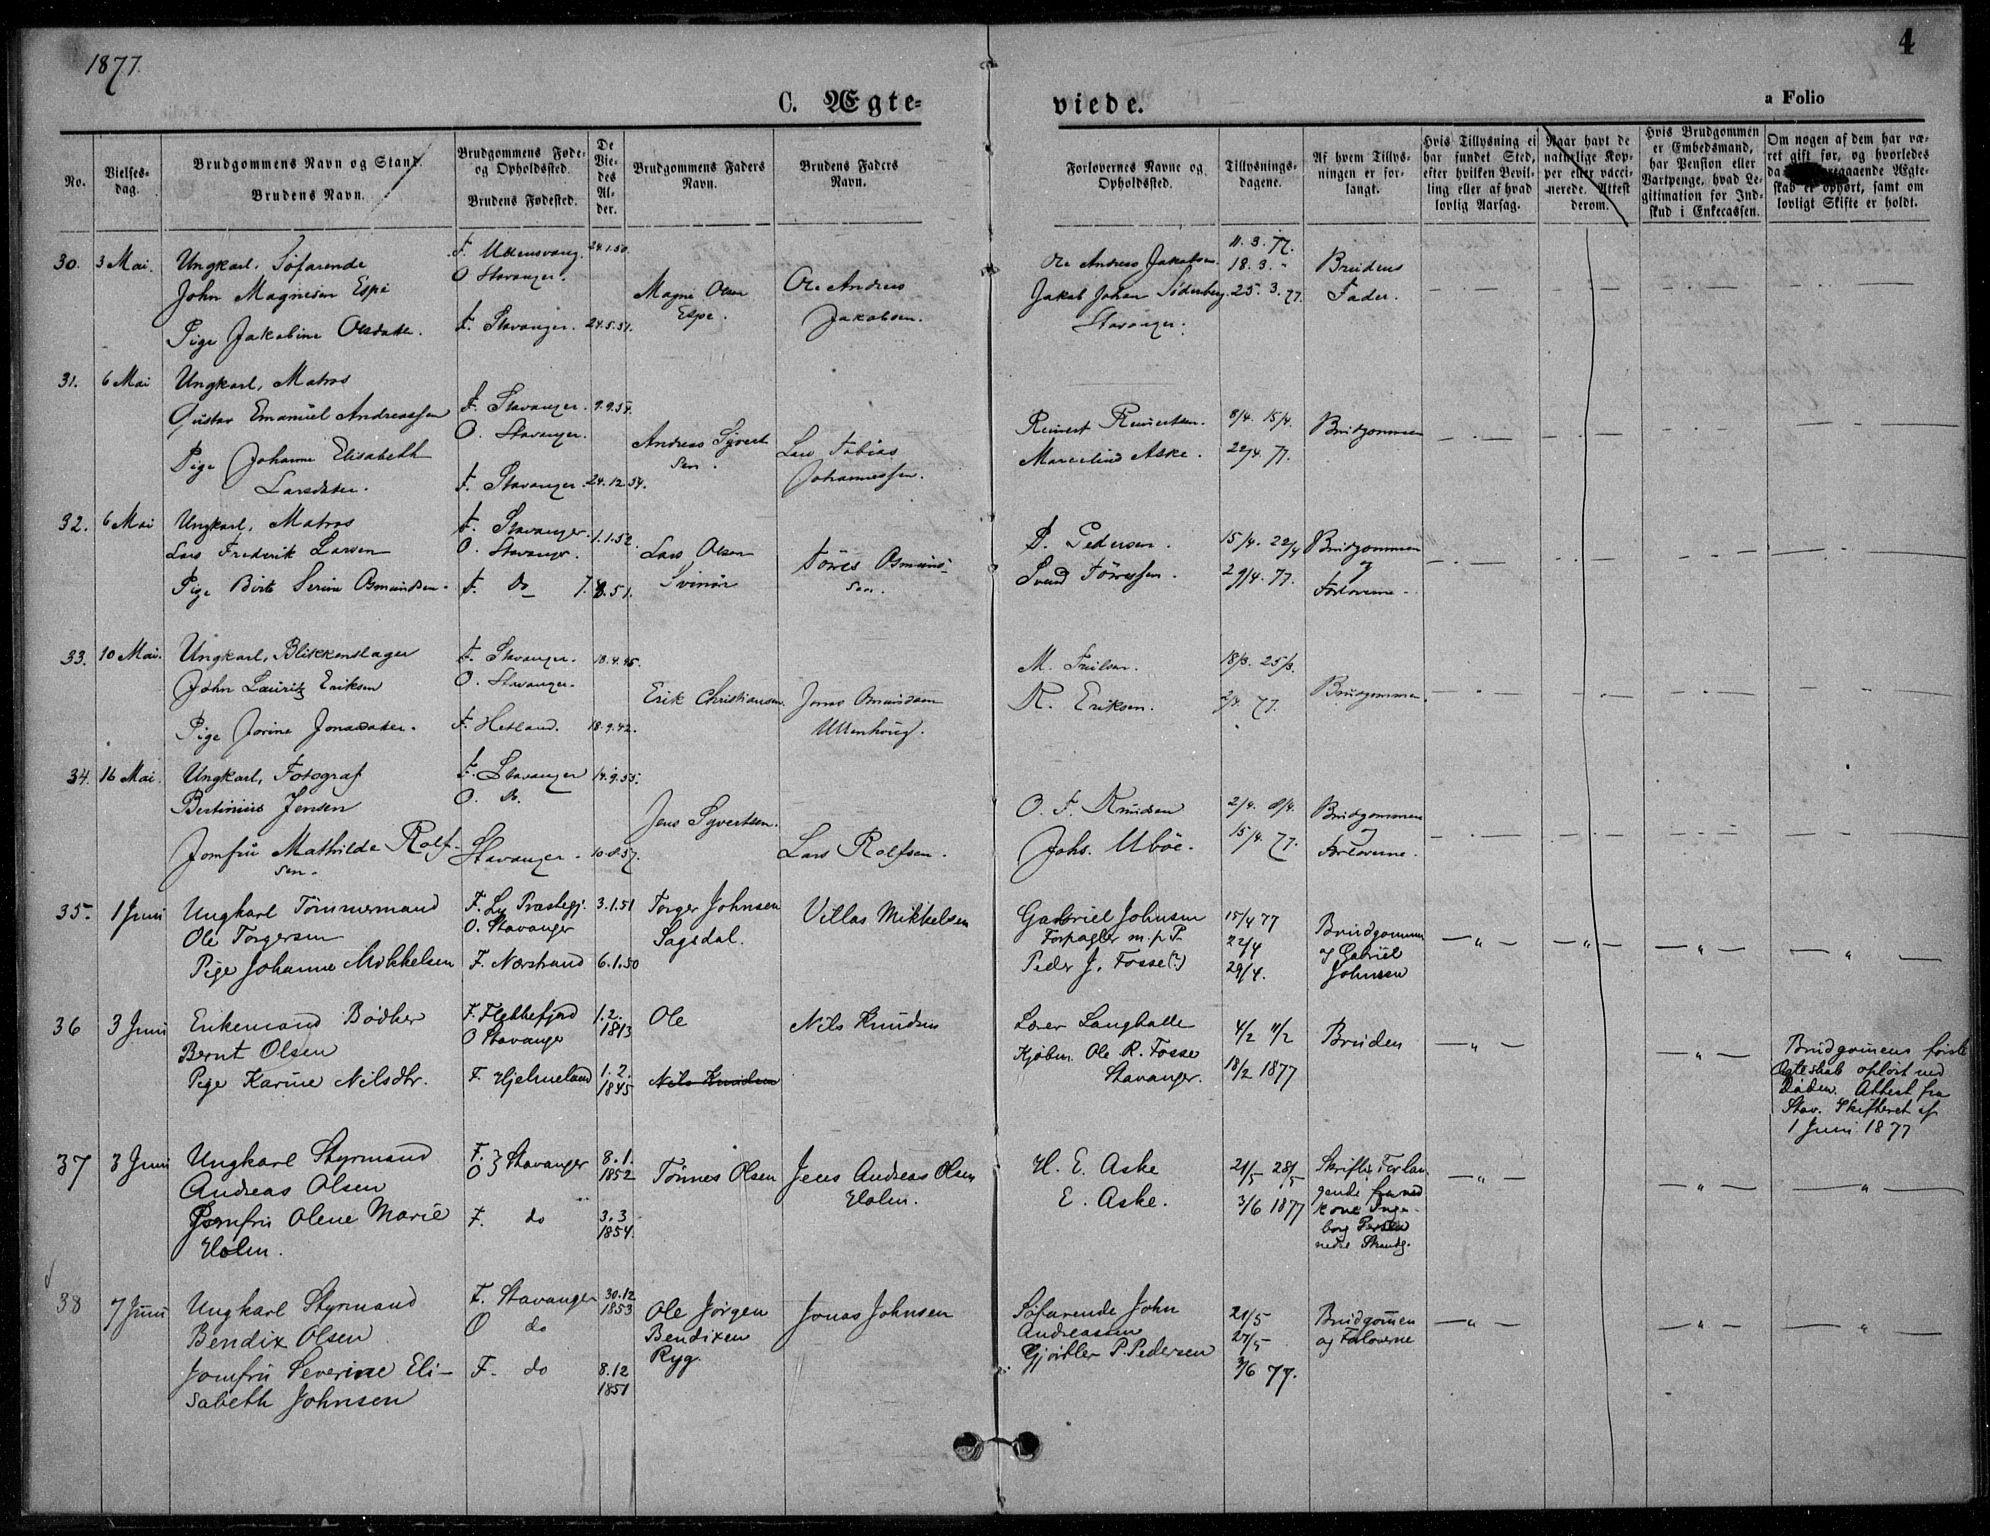 1877.
4
C. Ægte=
viede.
a Folio
No.
Vielses=
dag.
Brudgommens Navn og Stand.
Brudens Navn.
Brudgommens Føde=
og Opholdssted.
Brudens Fødested.
De
Vie=
des
Al=
der.
Brudgommens Faders
Navn.
Brudens Faders
Navn.
Forlovernes Navne og
Opholdssted.
Tillysnings=
dagene.
Af hvem Tillys=
ningen er for=
langt.
Hvis Tillysning ei
har fundet Sted,
efter hvilken Bevil=
ling eller af hvad
lovlig Aarsag.
Naar havt de
naturlige Kop=
per eller vacci=
nerede. Attest
derom.
Hvis Brudgommen
er Embedsmand,
har Pension eller
Vartpenge, hvad Le=
gitimation for Ind=
skud i Enkecassen.
Om nogen af dem har væ=
ret gift før, og hvorledes
da Ægte=
skab er ophørt, samt om
lovligt Skifte er holdt.
30. 3 Mai.
Ungkarl, Søfarende
John Magnesen Espe
Pige Jakobine Olsdatter.
F. Ullensvang.
O Stavanger.
F. Stavanger.
24.1.50
24.5.51.
Magne Olsen
Espe.
Ole Andreas
Jakobsen.
Ole Andreas Jakobsen.
Jakob Johan Söderberg
Stavanger.
11. 3. 77.
18. 3. "
25. 3. 77.
Brudens
Fader.
31. 6 Mai
Ungkarl, Matros
Gustav Emanuel Andreassen
Pige Johanne Elisabeth
Larsdatter.
F. Stavanger.
O. Stavanger.
F. Stavanger.
9.9.54.
24.12.54.
Andreas Syvert
sen.
Lars Tobias
Johannessen.
Reinert Reinertsen.
Marcelius Aske.
8/4. 15/4.
22/4. 77.
Brudgommen
32. 6 Mai
Ungkarl, Matros
Lars Frederik Larsen
Pige Birte Serine Osmundsen.
F. Stavanger.
O. Stavanger.
F. Do
1.1.52.
Lars Olsen
Svinør
Tørres Osmund=
sen.
P. Pedersen.
Svend Tørressen.
15/4. 22/4
29/4. 77.
Brudgommen
og
Forloverne.
33. 10 Mai.
Ungkarl, Blikkenslager
John Lauritz Eriksen
Pige Jorine Jonasdatter.
F. Stavanger.
O. Stavanger.
F. Hetland.
18.4.45.
18.9.42.
Erik Christiansen.
Jonas Osmundsen
Ullenhoug.
M.
R. Eriksen.
18/3. 25/3.
2/4. 77.
Brudgommen.
34. 16 Mai.
Ungkarl, Fotograf
Bertinius Jensen
Jomfru Mathilde Rolf-
sen.
F. Stavanger
O. Do.
Stavanger.
14.9.55.
10.8.57.
Jens Syvertsen.
Lars Rolfsen.
O. F. Knudsen
Johs. Ubøe.
2/4. 8/4.
15/4. 77.
Brudgommen
og
Forloverne.
35. 1 Juni
Ungkarl Tömmermand
Ole Torgersen
Pige Johanne Mikkelsen
F. Ly Præstegj.
O. Stavanger
F. Nærstrand
3.1.51
6.1.50
Torger Johnsen
Sagsdal.
Villas Mikkelsen
Gabriel Johnsen
Forpagter m. p. P.
Peder J. Fosse (?)
15/4 77
22/4
29/4.
Brudgommen
og Gabriel
Johnsen
36 3 Juni
Enkemand Bødker
Bernt Olsen
Pige Karine Nilsdtr.
F. Flekkefjord
O Stavanger
F. Hjelmeland
1.2.
1813
1.2.
1845
Ole
Nils Knudsen
Nils Knudsen
Lærer Langhalle
Kjøbm. Ole R. Fosse
Stavanger.
4/2 11/2
18/2 1877
Bruden
Brudgomens første
Ægteskab opløst ved
Døden. Attest fra
Stav. Skifteret af
1 Juni 1877
37 3 Juni
Ungkarl Styrmand
Andreas Olsen
Jomfru Olene Marie
Holm.
F. }
O } Stavanger
F. do
8.1.
1852
3.3
1854.
Tönnes Olsen
Jens Andreas Olsen
Holm.
H. E. Aske
E. Aske.
21/5 28/5
3/6 1877
Skriftlig Forlan-
gende fra ved
kone Inge-
borg
nedre Strandg.
38 7 Juni
Ungkarl Styrmand
Bendix Olsen
Jomfru Severine Eli-
sabeth Johnsen
F. Stavanger
O do
F. do
30.12
1853
8.12
1851
Ole Jörgen
Bendixen
Ryg.
Jonas Johnsen
Söfarende John
Andreassen
Gjörtler P. Pedersen
21/5
27/5
3/6 77.
Brudgomen
og Forloverne